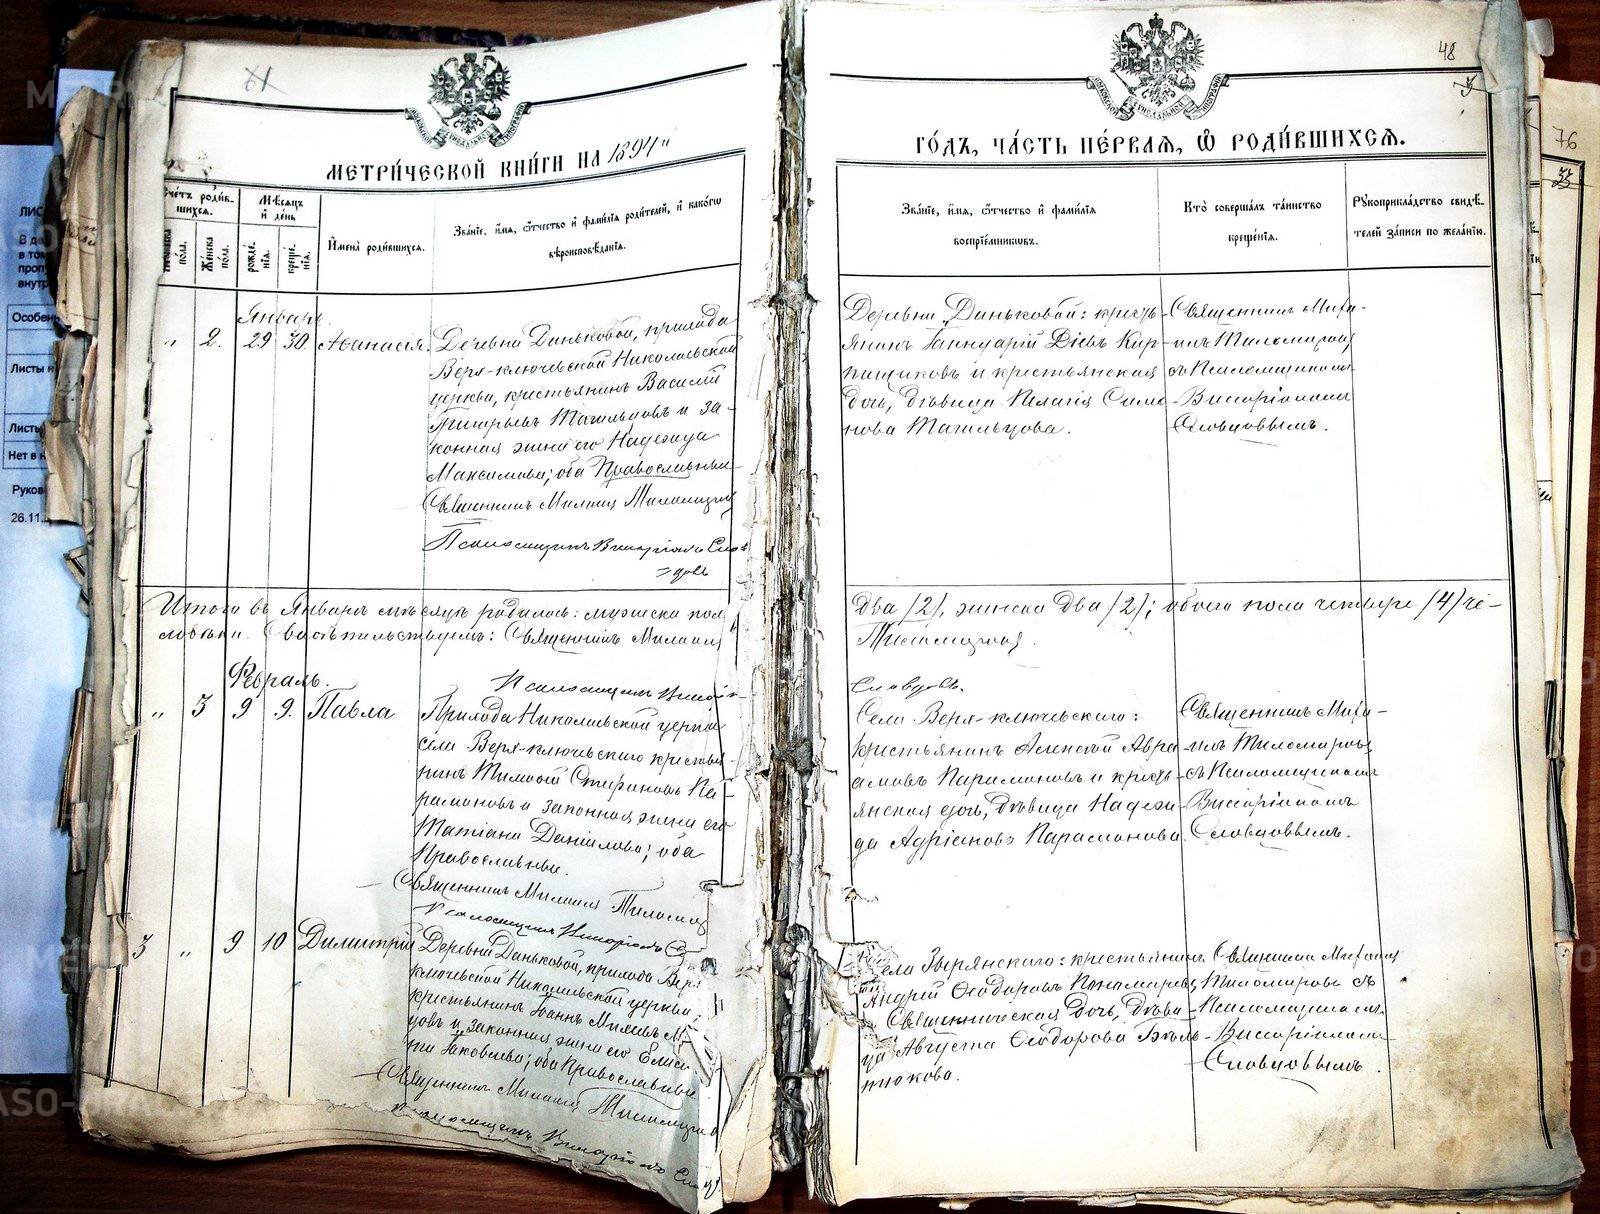 48
76
33
МЕТРИ́ЧЕСКОЙ КНИ́ГИ НА 1894
ГО́ДЪ, ЧА́СТЬ ПЕ́РВАЯ, Ѡ҆ РОДИ́ВШИХСЯ.
Сче́тъ роди́в-
шихся.
Мѣ́сяцъ
и҆ де́нь
Же́нска
по́ла.
по́ла.
рожде́-
нія.
креще́-
нія.
И҆мена̀ роди́вшихся.
Зва́ніе, и҆́мя, ѻ҆́тчество и҆ фами́лія роди́телей, и҆ како́гѡ
вѣроисповѣ́данія.
Зва́ніе, и҆́мя, ѻ҆́тчество и҆ фами́лія
воспріе́мниковъ.
Кто̀ соверша́лъ та́инство
креще́нія.
Рꙋкоприкла́дство свидѣ́-
телей за́писи по жела́нію.
Январь.
„ 2. 29 30 Аѳанасія.
Деревни Даньковой, прихода
Верх-ключевской Николаевской
церкви, крестьянинъ Василій
Григорьевъ Тагильцовъ и за-
конная жена его Надежда
Максимова; оба Православные
Священникъ Михаилъ Тихомировъ
Псаломщикъ Виссаріонъ Слов-
цовъ
Деревни Даньковой: кресть-
янинъ Іаннуарій Діевъ Кир-
пищиковъ и крестьянская
дочь, дѣвица Пелагія Симо-
нова Тагильцова.
Священникъ Миха-
илъ Тихомировъ
съ Псаломщикомъ
Виссаріономъ
Словцовымъ.
Итого въ Январѣ мѣсяцѣ родилось: мужска пола
два /2/, женска два /2/; обоего пола четверо /4/ че-
ловѣка. Свидѣтельствуемъ: Священникъ Михаилъ
Тихомировъ.
Псаломщикъ Виссаріонъ
Словцовъ.
Февраль.
„ 3 9 9. Павла
Прихода Николаевской церкви
села Верх-ключевского крестья-
нинъ Тимоѳей Стефановъ Па-
рамоновъ и законная жена его
Татіана Даніилова; оба
Православные.
Священникъ Михаилъ Тихомировъ
Псаломщикъ Виссаріонъ
Села Верх-ключевского:
крестьянинъ Алексѣй Авра-
амовъ Парамоновъ и кресть-
янская дочь, дѣвица Надеж-
да Адріанова Парамонова.
Священникъ Миха-
илъ Тихомировъ
съ Псаломщикомъ
Виссаріономъ
Словцовымъ.
3 „ 9 10 Димитрій
Деревни Даньковой, прихода Верх-
ключевской Николаевской церкви,
крестьянинъ Іоаннъ
и законная жена его Елиса-
Іаковлева; оба Православные
Священникъ Михаилъ Тихомировъ
Псаломщикъ Виссаріонъ
Села Зырянскаго: крестьянинъ
Андрей Ѳеодоровъ Пономаревъ
Священническая дочь, дѣви-
ца Августа Ѳеодорова Бѣль-
тюкова.
Священникъ Михаилъ
Тихомировъ съ
Псаломщикомъ
Виссаріономъ
Словцовымъ.